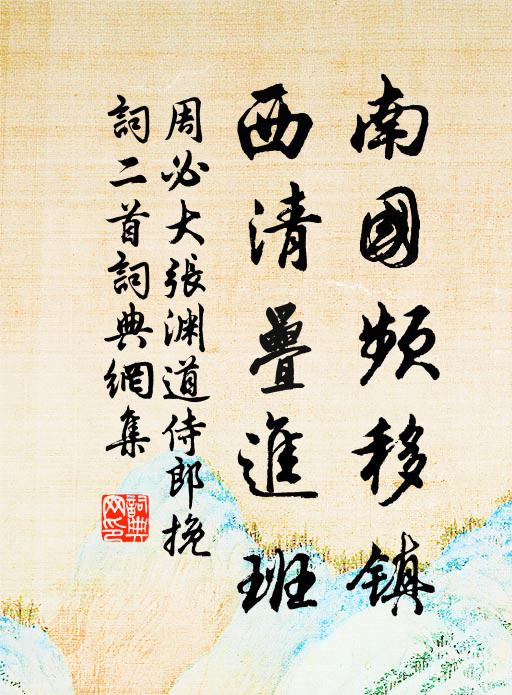 南國頻移鎮
西清疊進班
周必大張淵道侍郎挽
詞二首詞典網集
詞典
网印